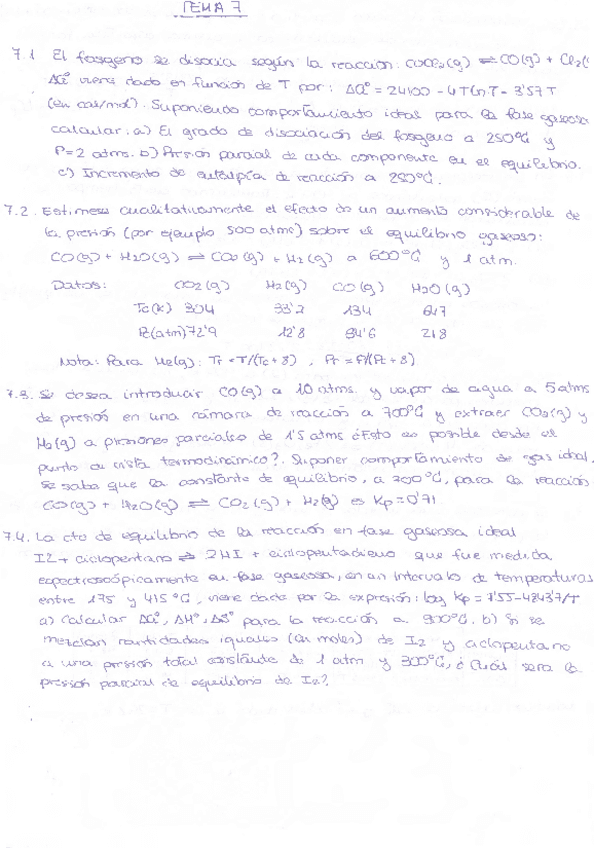 TEMA 7
7.1 El fosgeno se disocia según la reacción: COCl2(g) ⇌ CO(g) + Cl2(
ΔG° viene dado en función de T por: ΔG° = 24100 - 4 T ln T - 3'57 T
(en cal/mol). Suponiendo comportamiento ideal para la fase gaseosa
calcular: a) El grado de disociación del fosgeno a 250°C y
P=2 atms. b) Presión parcial de cada componente en el equilibrio.
c) Incremento de entalpía de reacción a 250°C.
7.2. Estímese cualitativamente el efecto de un aumento considerable de
la presión (por ejemplo 500 atms) sobre el equilibrio gaseoso:
CO(g) + H2O(g) ⇌ CO2(g) + H2(g) a 600°C y 1 atm.
Datos: CO2(g) H2(g) CO(g) H2O(g)
Tc(K) 304 33'2 134 647
Pc(atm) 72'9 12'8 34'6 218
Nota: Para H2(g): Tr = T/(Tc+8) , Pr = P/(Pc+8)
7.3. Se desea introducir CO(g) a 10 atms. y vapor de agua a 5 atms
de presión en una cámara de reacción a 700°C y extraer CO2(g) y
H2(g) a presiones parciales de 1'5 atms ¿Esto es posible desde el
punto de vista termodinámico?. Suponer comportamiento de gas ideal.
se sabe que la constante de equilibrio, a 700°C, para la reacción
CO(g) + H2O(g) ⇌ CO2(g) + H2(g) es Kp=0'71
7.4. La cte de equilibrio de la reacción en fase gaseosa ideal
I2 + ciclopentano ⇌ 2HI + ciclopentadieno que fue medida
espectroscópicamente en fase gaseosa, en un intervalo de temperaturas
entre 175 y 415 °C, viene dada por la expresión: log Kp = 7'55-4843'7/T
a) Calcular ΔG°, ΔH°, ΔS° para la reacción a 300°C. b) Si se
mezclan cantidades iguales (en moles) de I2 y ciclopentano
a una presión total constante de 1 atm y 300°C, ¿Cuál será la
presión parcial de equilibrio de I2?